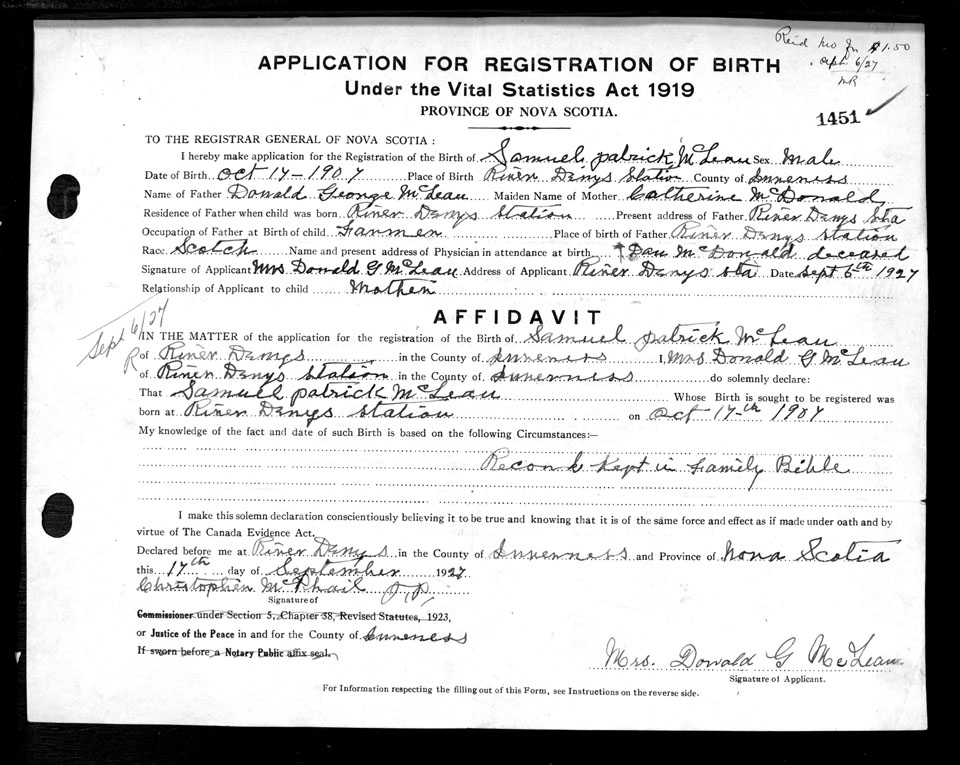 Reid Mo Jn $1.50
Sept. 6/27
MR
APPLICATION FOR REGISTRATION OF BIRTH
Under the Vital Statistics Act 1919
PROVINCE OF NOVA SCOTIA.
1451
TO THE REGISTRAR GENERAL OF NOVA SCOTIA:
I hereby make application for the Registration of the Birth of Samuel patrick McLean Sex Male
Date of Birth Oct 17-1907 Place of Birth River Denys Station County of Inverness
Name of Father Donald George McLean Maiden Name of Mother Catherine McDonald
Residence of Father when child was born River Denys Station Present address of Father River Denys Sta
Occupation of Father at Birth of child Farmer Place of birth of Father River Denys Station
Race Scotch Name and present address of Physician in attendance at birth Dan McDonald deceased
Signature of Applicant Mrs Donald G McLean Address of Applicant River Denys Sta Date Sept 6th 1927
Relationship of Applicant to child Mother
Sept 6/27
R
AFFIDAVIT
IN THE MATTER of the application for the registration of the Birth of Samuel patrick McLean
of River Denys in the County of Inverness I Mrs Donald G McLean
of River Denys Station in the County of Inverness do solemnly declare:
That Samuel patrick McLean Whose Birth is sought to be registered was
born at River Denys Station on Oct 17-th 1907
My knowledge of the fact and date of such Birth is based on the following Circumstances:—
Record Kept in Family Bible
I make this solemn declaration conscientiously believing it to be true and knowing that it is of the same force and effect as if made under oath and by
virtue of The Canada Evidence Act.
Declared before me at River Denys in the County of Inverness and Province of Nova Scotia
this 17th day of September 1927
Christopher McPhail J.P.
Signature of
Commissioner under Section 5, Chapter 38, Revised Statutes, 1923,
or Justice of the Peace in and for the County of Inverness
If sworn before a Notary Public affix seal.
Mrs. Donald G McLean
Signature of Applicant.
For Information respecting the filling out of this Form, see Instructions on the reverse side.